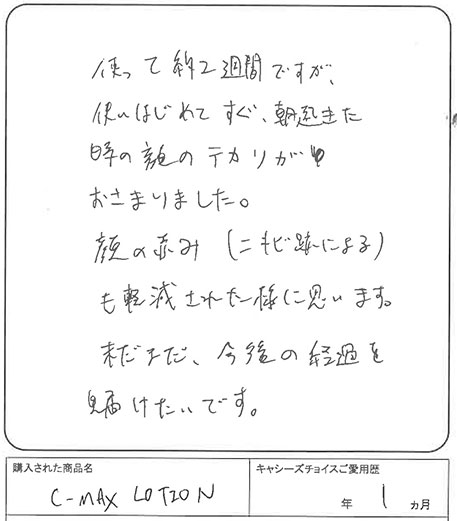 使って約2週間ですが、
使いはじめてすぐ、朝起きた
時の顔のテカリが
おさまりました。
顔の赤み（ニキビ跡による）
も軽減された様に思います。
まだまだ、今後の経過を
見届けたいです。
購入された商品名
キャシーズチョイスご愛用歴
C-MAX LOTION
年 1 ヵ月